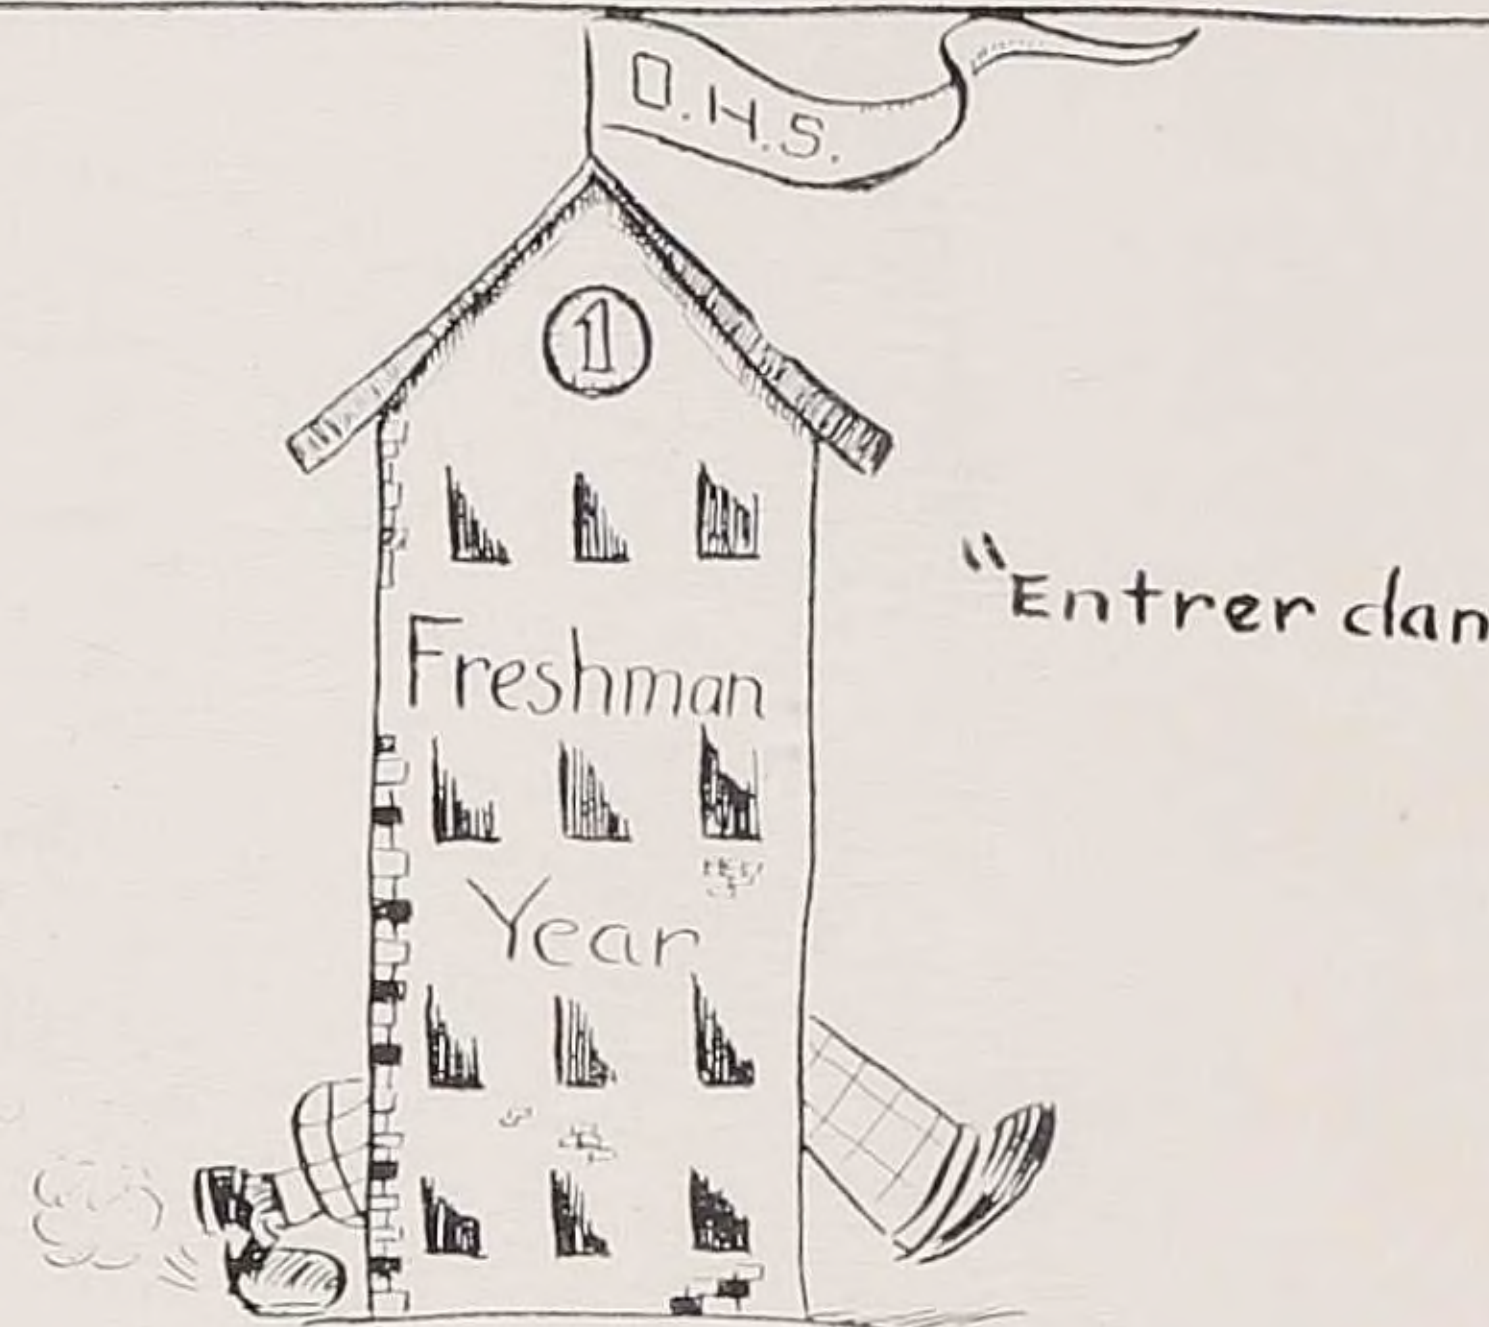 O.H.S.
1
Freshman
Year
"Entrer dan